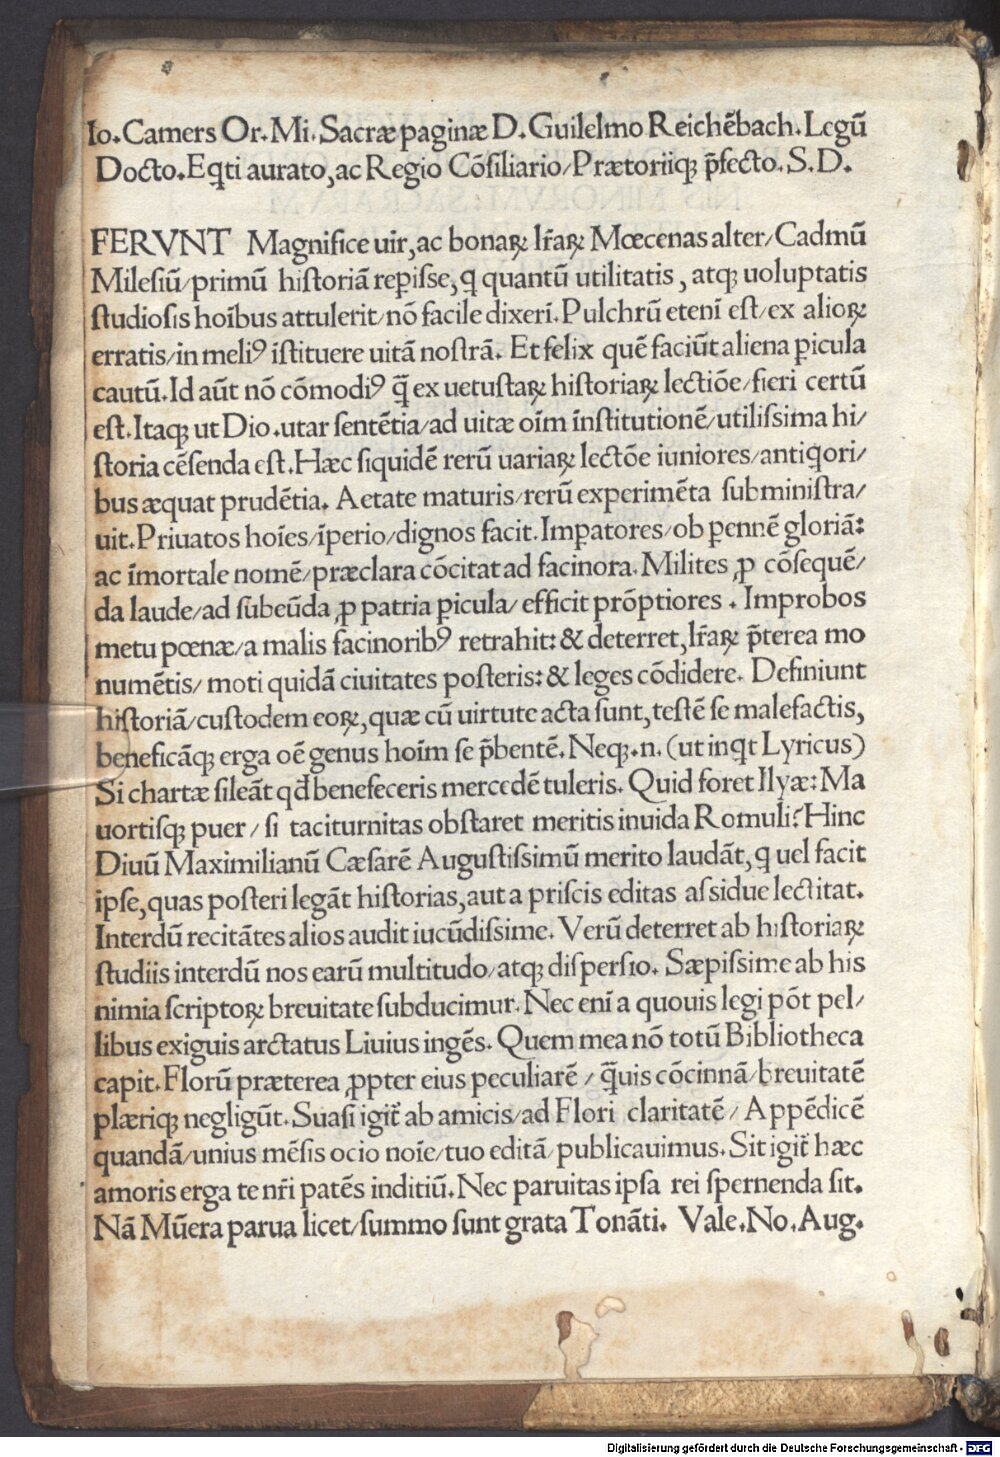 Io. Camers Or. Mi. Sacræ paginæ D. Guilelmo Reichēbach. Legū
Docto. Eqti aurato, ac Regio Cōſiliario/ Prætoriiqꝫ p̄fecto. S. D.
FERVNT Magnifice uir, ac bonaꝝ lr̄aꝝ Mœcenas alter/ Cadmū
Mileſiū/ primū hiſtoriā reꝑiſſe, q quantū utilitatis, atqꝫ uoluptatis
ſtudioſis hoībus attulerit/ nō facile dixeri. Pulchrū etenī eſt/ ex alioꝝ
erratis/ in meliꝰ īſtituere uitā noſtrā. Et felix quē faciūt aliena ꝑicula
cautū. Id aūt nō cōmodiꝰ q̄ ex uetuſtaꝝ hiſtoriaꝝ lectiōe/ fieri certū
eſt. Itaqꝫ ut Dio. utar ſentētia/ ad uitæ oīm īnſtitutionē/ utiliſſima hi/
ſtoria cēſenda eſt. Hæc ſiquidē rerū uariaꝝ lectōe iuniores/ antiqori/
bus æquat prudētia. Aetate maturis/ rerū experimēta ſubminiſtra/
uit. Priuatos hoīes/ īperio/ dignos facit. Imꝑatores/ ob ꝑennē gloriā:
ac īmortale nomē/ præclara cōcitat ad facinora. Milites ꝓ cōſequē/
da laude/ ad ſubeūda ꝓ patria ꝑicula/ efficit prōptiores. Improbos
metu pœnæ/ a malis facinoribꝰ retrahit: & deterret, lr̄aꝝ p̄terea mo
numētis/ moti quidā ciuitates poſteris: & leges cōdidere. Definiunt
hiſtoriā/ cuſtodem eoꝝ, quæ cū uirtute acta ſunt, teſtē ſe malefactis,
beneficāqꝫ erga oē genus hoīm ſe p̄bentē. Neqꝫ.n. (ut inqt Lyricus)
Si chartæ ſileāt qd̄ benefeceris mercedē tuleris. Quid foret Ilyæ: Ma
uortiſqꝫ puer/ ſi taciturnitas obſtaret meritis inuida Romuli? Hinc
Diuū Maximilianū Cæſarē Auguſtiſſimū merito laudāt, q uel facit
ipſe, quas poſteri legāt hiſtorias, aut a priſcis editas aſſidue lectitat.
Interdū recitātes alios audit iucūdiſſime. Verū deterret ab hiſtoriaꝝ
ſtudiis interdū nos earū multitudo/ atqꝫ diſperſio. Sæpiſſime ab his
nimia ſcriptoꝝ breuitate ſubducimur. Nec enī a quouis legi pōt pel/
libus exiguis arctatus Liuius ingēs. Quem mea nō totū Bibliotheca
capit. Florū præterea ꝓpter eius peculiarē/ q̄uis cōcinnā/ breuitatē
plæriqꝫ negligūt. Suaſi igit̄ ab amicis/ ad Flori claritatē/ Appēdicē
quandā/ unius mēſis ocio noīe/ tuo editā/ publicauimus. Sit igit̄ hæc
amoris erga te nr̄i patēs inditiū. Nec paruitas ipſa rei ſpernenda ſit.
Nā Mūera parua licet/ ſummo ſunt grata Tonāti. Vale. No. Aug.
Digitalisierung gefördert durch die Deutsche Forschungsgemeinschaft - DFG